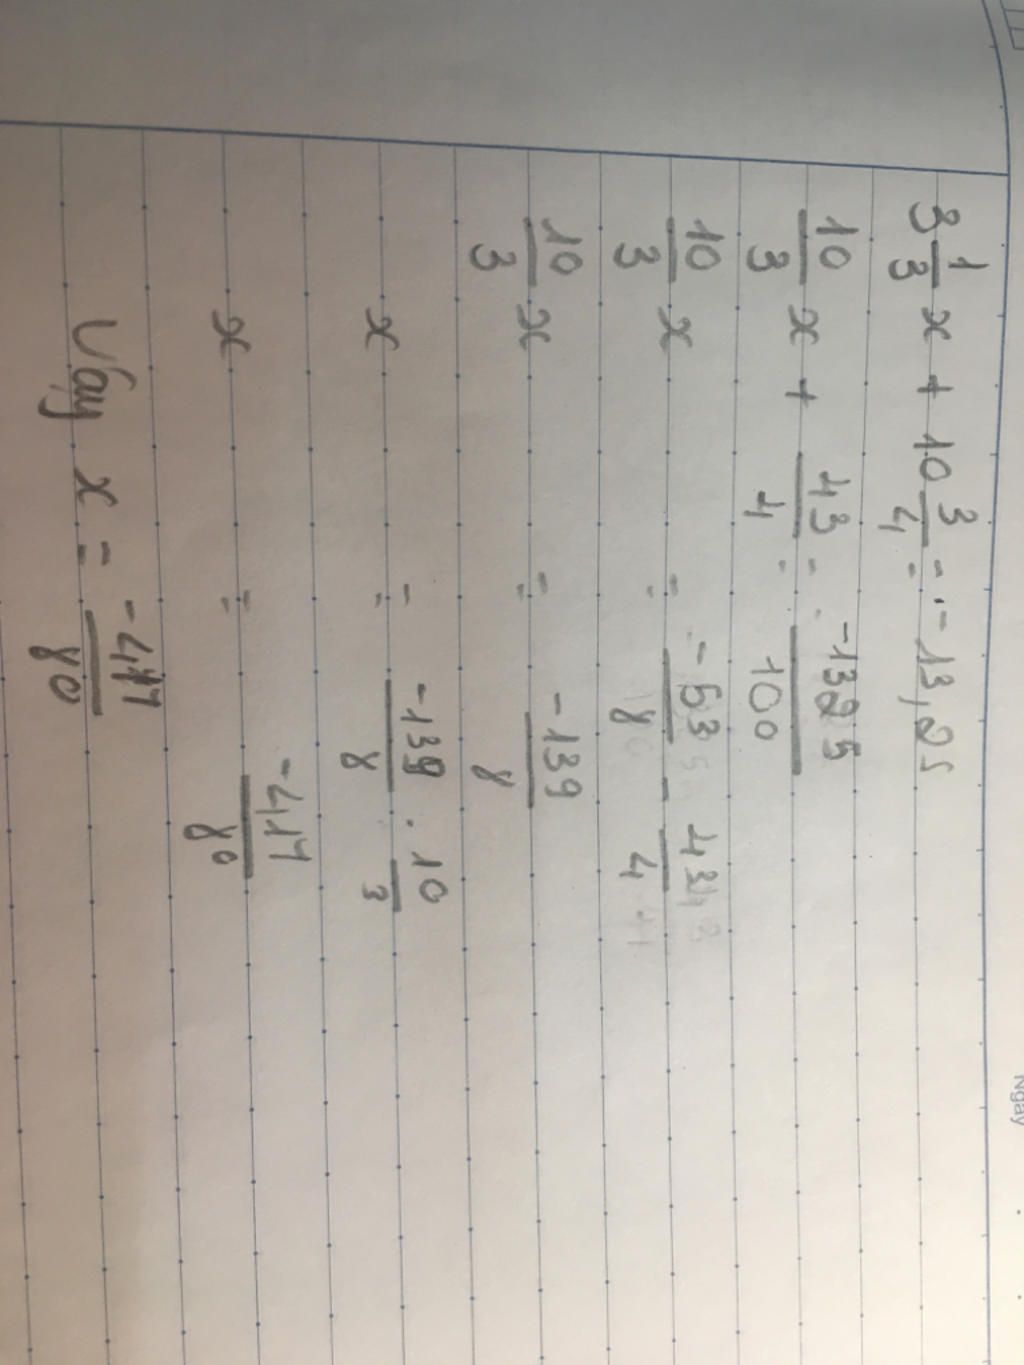 Ngày
3 1/3 x + 10 3/4 = -13,25
10/3 x + 43/4 = -1325/100
10/3 x = -53/8 - 43/4
10/3 x = -139/8
x = -139/8 . 10/3
x = -417/80
Vậy x = -417/80